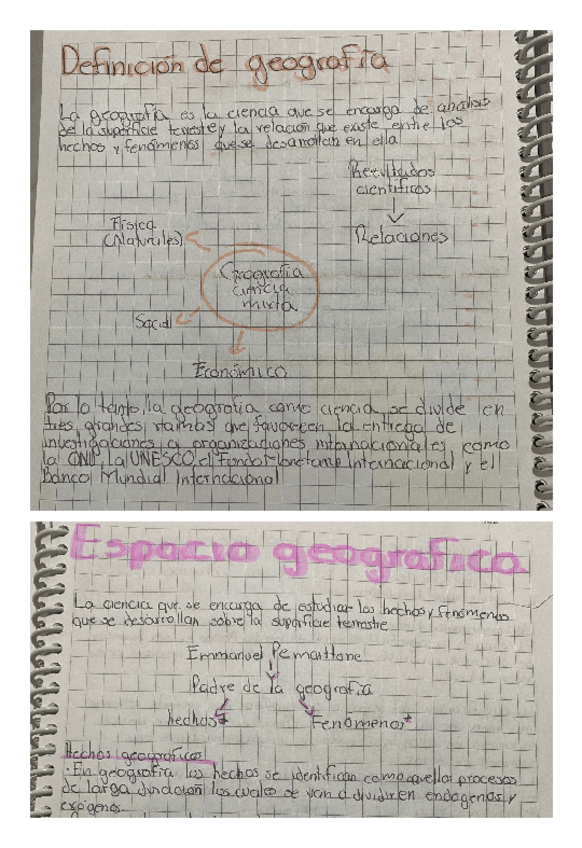 Definición de geografía
La geografía es la ciencia que se encarga de analisis
de la superficie terestre y la relación que existe entre los
hechos y fenómenos que se desarrollan en ella
Resultados
científicos
Relaciones
Física
(Naturales)
Geografía
ciencia
mixta
Social
Económico
Por lo tanto, la geografía como ciencia, se divide en
tres grandes ramas que favorecen la entrega de
investigaciones a organizaciones internacionales como
la ONU, la UNESCO, el Fondo Monetario Internacional y el
Banco Mundial Internacional
Espacio geografico
La ciencia que se encarga de estudiar los hechos y fenómenos
que se desarrollan sobre la superficie terrestre
Emmanuel
Padre de la geografía
hechos
Fenómenos
Hechos geograficos
· En geografía los hechos se identifican como aquellos procesos
de larga duración los cuales se van a dividir en endógenos y
exógenos.